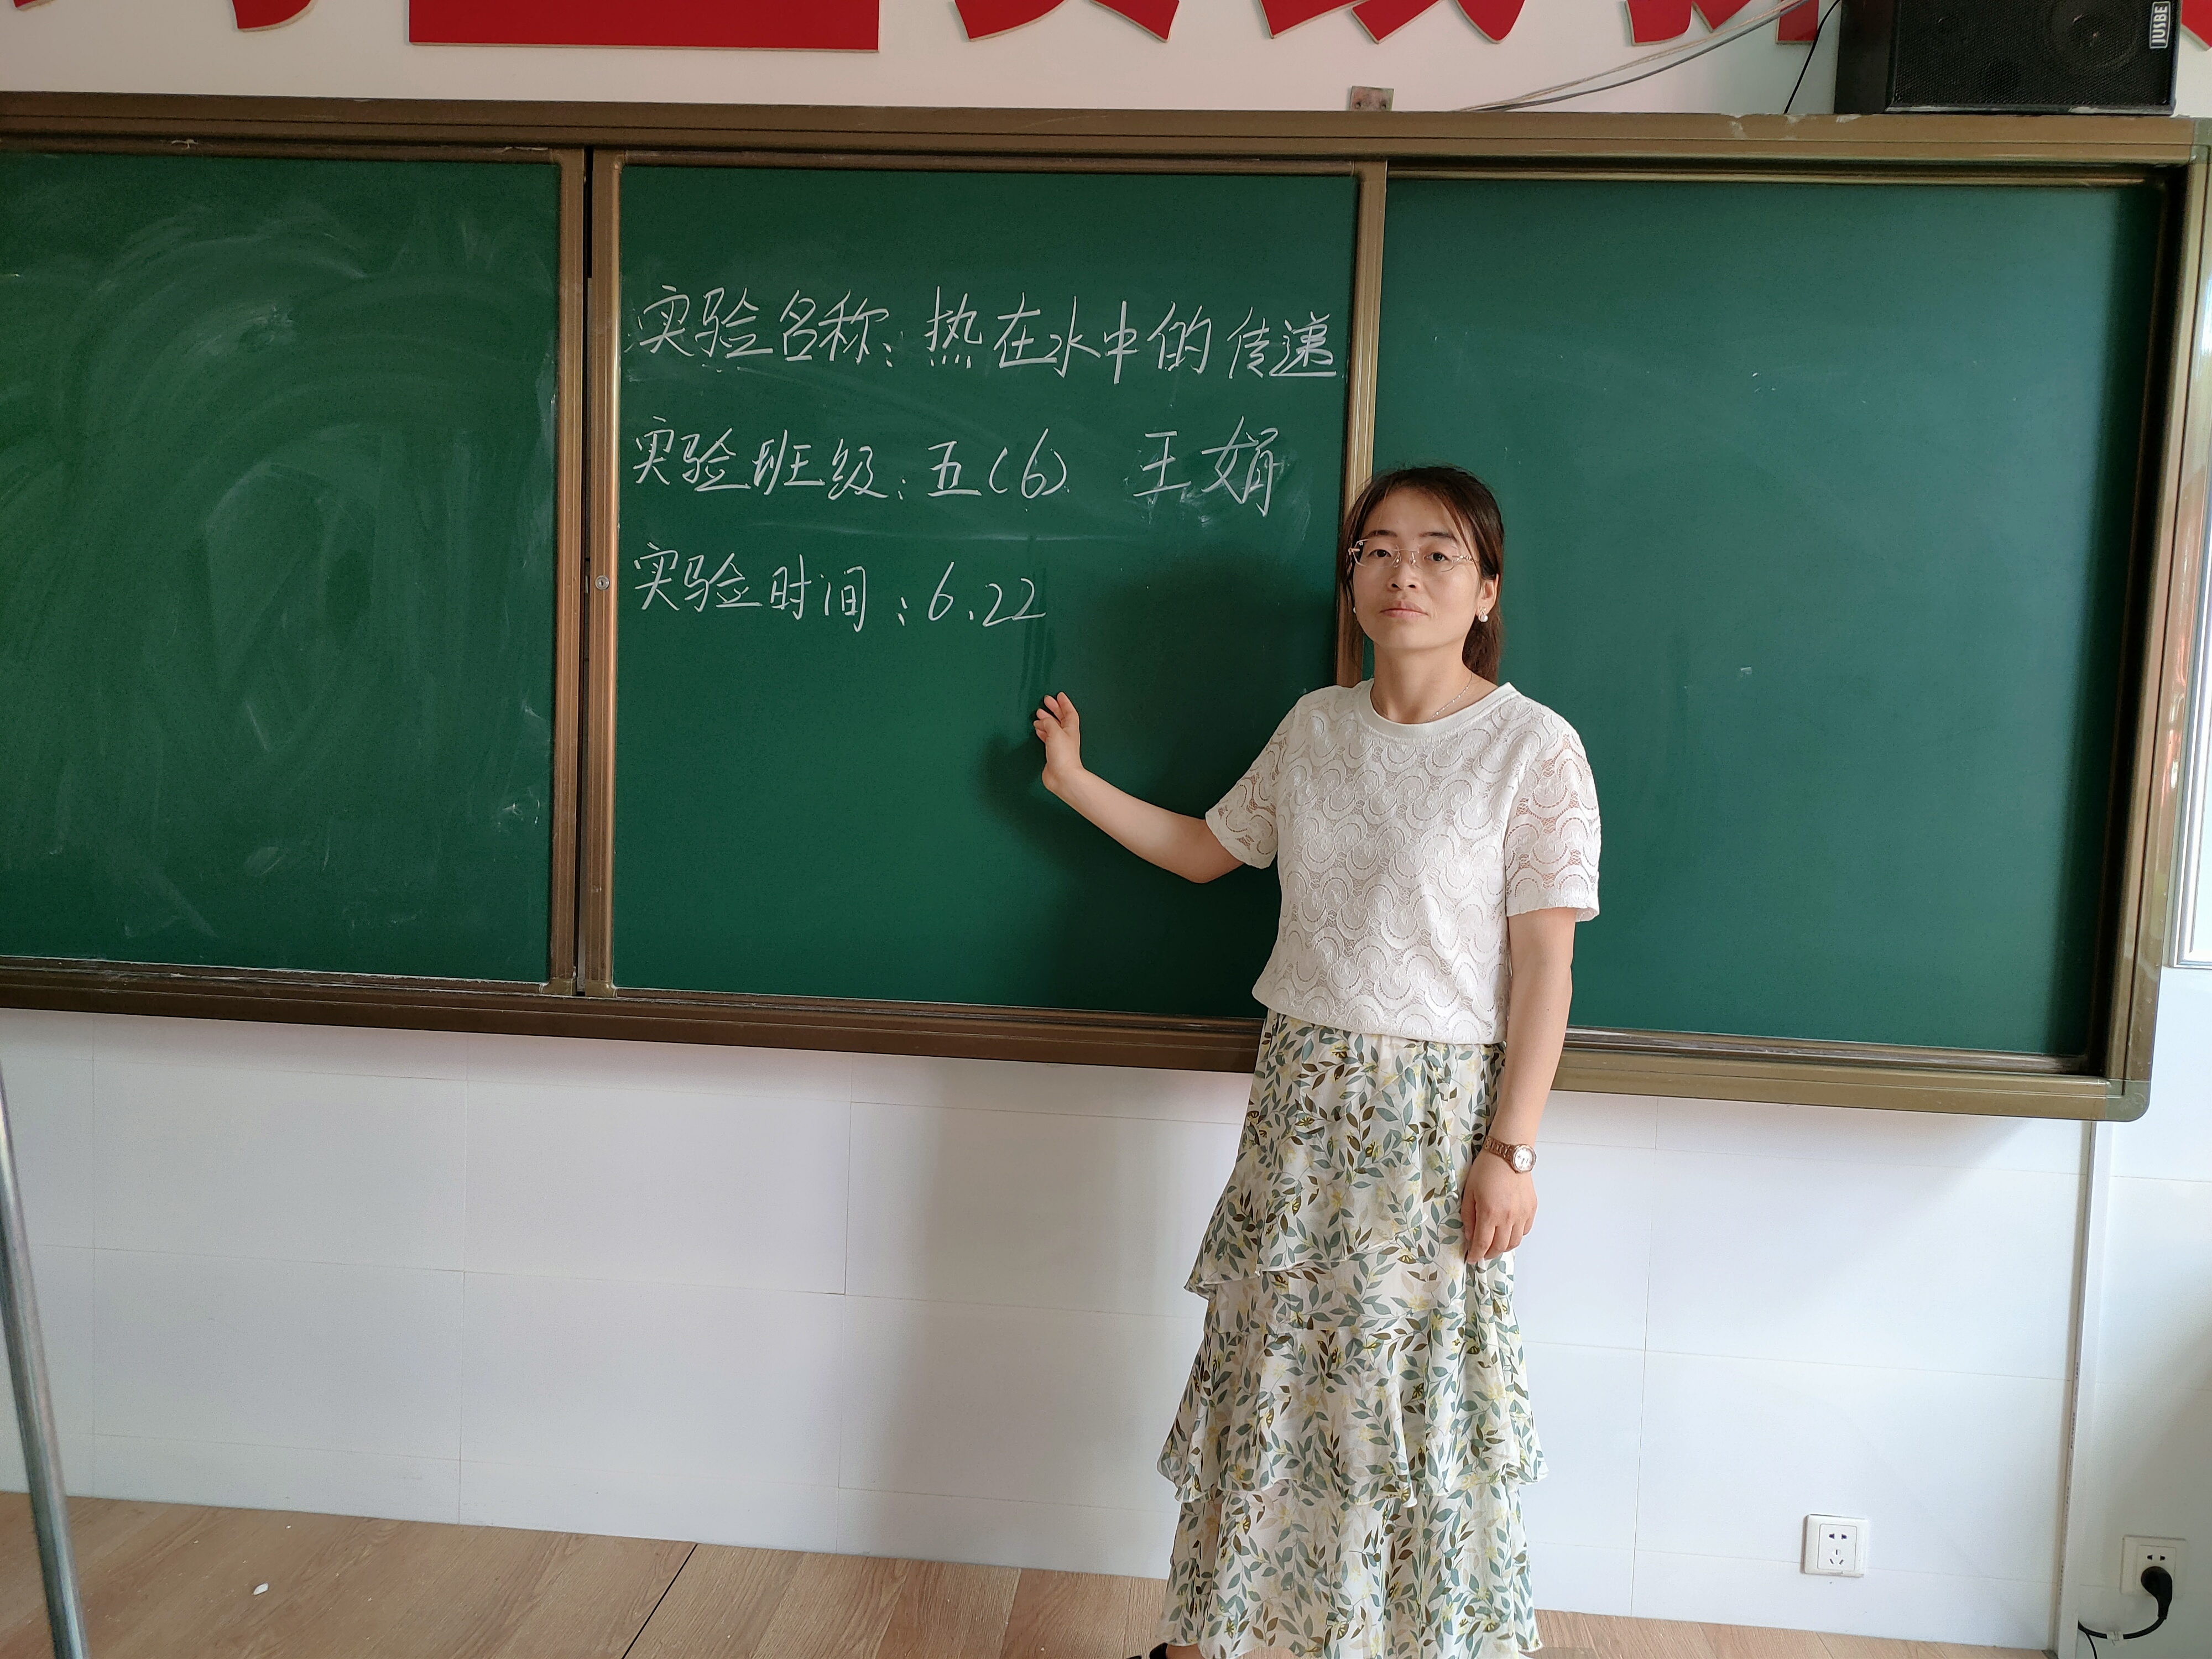 JUSBE
实验名称：热在水中的传递
实验班级：五(6) 王娟
实验时间：6.22